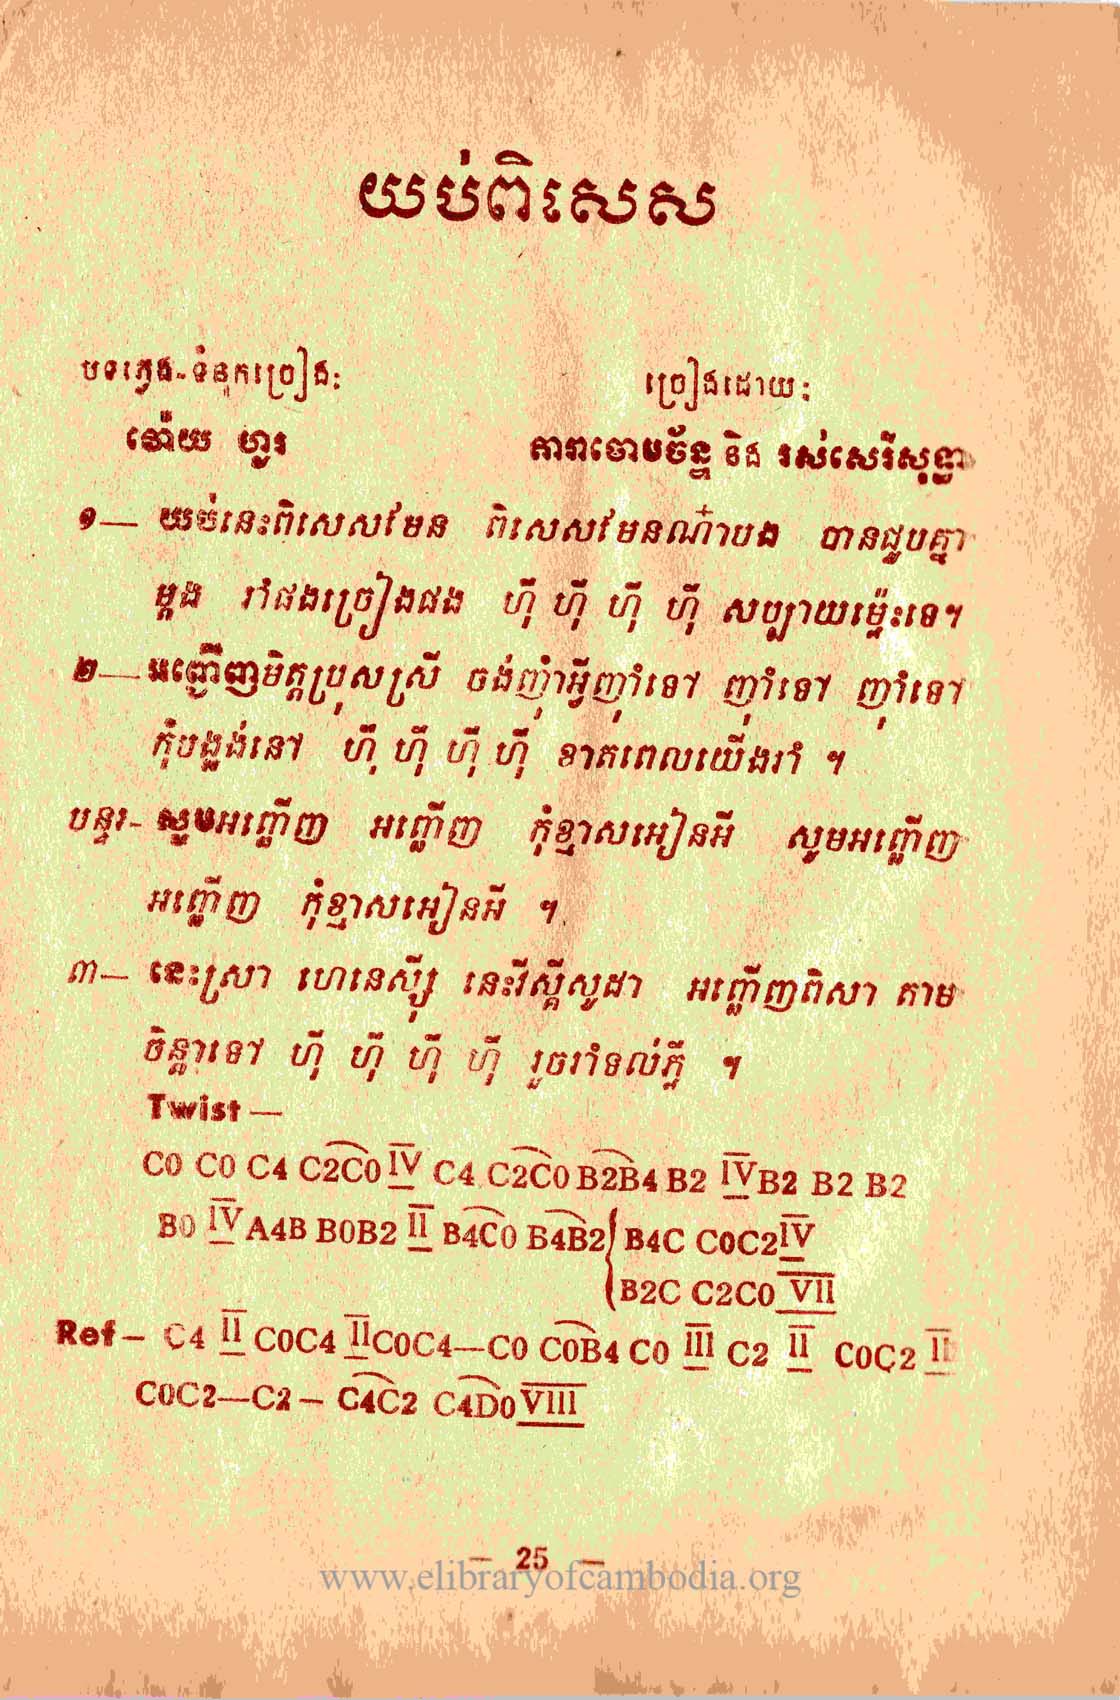 យប់ពិសេស
បទភ្លេង-ទំនុកច្រៀង:
ច្រៀងដោយ:
ណោយ ហួរ
តារាចោមច័ន្ទ និង រស់សេរីសុទ្ធា
១— យប់នេះពិសេសមែន ពិសេសមែនណ៎ាបង បានជួបគ្នា
ម្ដង រាំផងច្រៀងផង ហ៊ី ហ៊ី ហ៊ី ហ៊ី សប្បាយម៉្លេះទេ។
២— អញ្ជើញមិត្តប្រុសស្រី ចង់ញ៉ាំអ្វីញ៉ាំទៅ ញ៉ាំទៅ ញ៉ាំទៅ
កុំបង្អង់នៅ ហ៊ី ហ៊ី ហ៊ី ហ៊ី ខាតពេលយើងរាំ ។
បន្ទរ- សូមអញ្ជើញ អញ្ជើញ កុំខ្មាសអៀនអី សូមអញ្ជើញ
អញ្ជើញ កុំខ្មាសអៀនអី ។
៣— នេះស្រា ហេនេស៊ីស្ស នេះវីស្គីសូដា អញ្ជើញពិសា តាម
ចិន្តាទៅ ហ៊ី ហ៊ី ហ៊ី ហ៊ី រួចរាំទល់ភ្លឺ ។
Twist —
C0 C0 C4 C2C0 IV C4 C2C0 B2B4 B2 IV B2 B2 B2
B0 IV A4B B0B2 II B4C0 B4B2 { B4C C0C2 IV
B2C C2C0 VII
Ref — C4 II C0C4 II C0C4—C0 C0B4 C0 III C2 II C0C2 II
C0C2—C2 — C4C2 C4D0 VIII
— 25 —
www.elibraryofcambodia.org